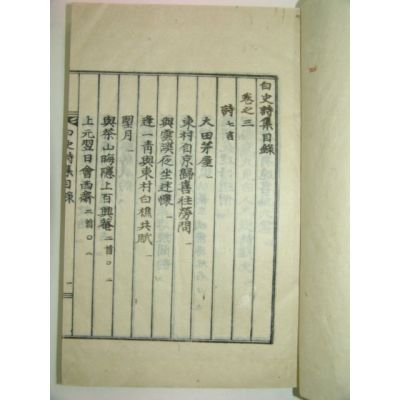 白史詩集目錄
卷之三
詩 七言
大田茅屋
東村自京歸喜往勞問 一
與雲溪夜坐述懷 一
逢一青與東村白樵共賦
望月 一
與茶山晦隱上百興菴 二首〇二
上元翌日會西齋 二首〇二
白史詩集目錄
一